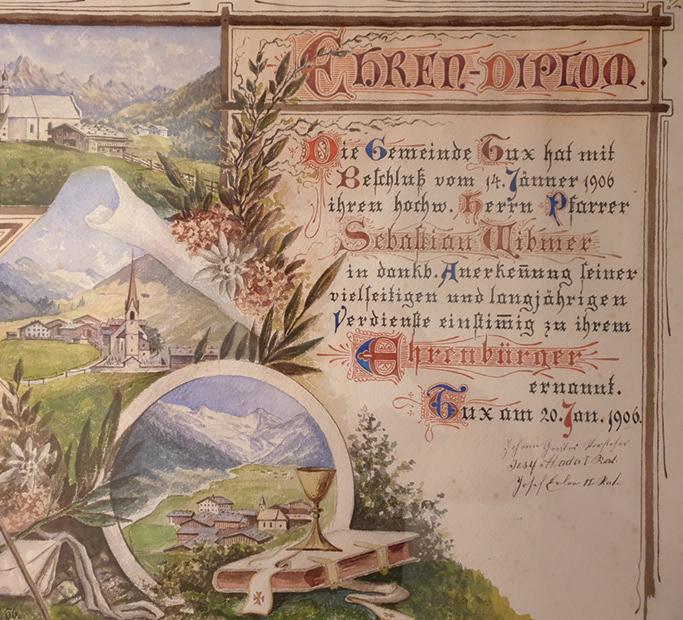 EHREN-DIPLOM.
Die Gemeinde Tux hat mit
Beschluß vom 14. Jänner 1906
ihren hochw. Herrn Pfarrer
Sebastian Wibmer
in dankb. Anerkennung seiner
vielseitigen und langjährigen
Verdienste einstimmig zu ihrem
Ehrenbürger
ernannt.
Tux am 20. Jan. 1906.
Johann Vorsteher
Josef I Rat.
Josef Erler II Rat.